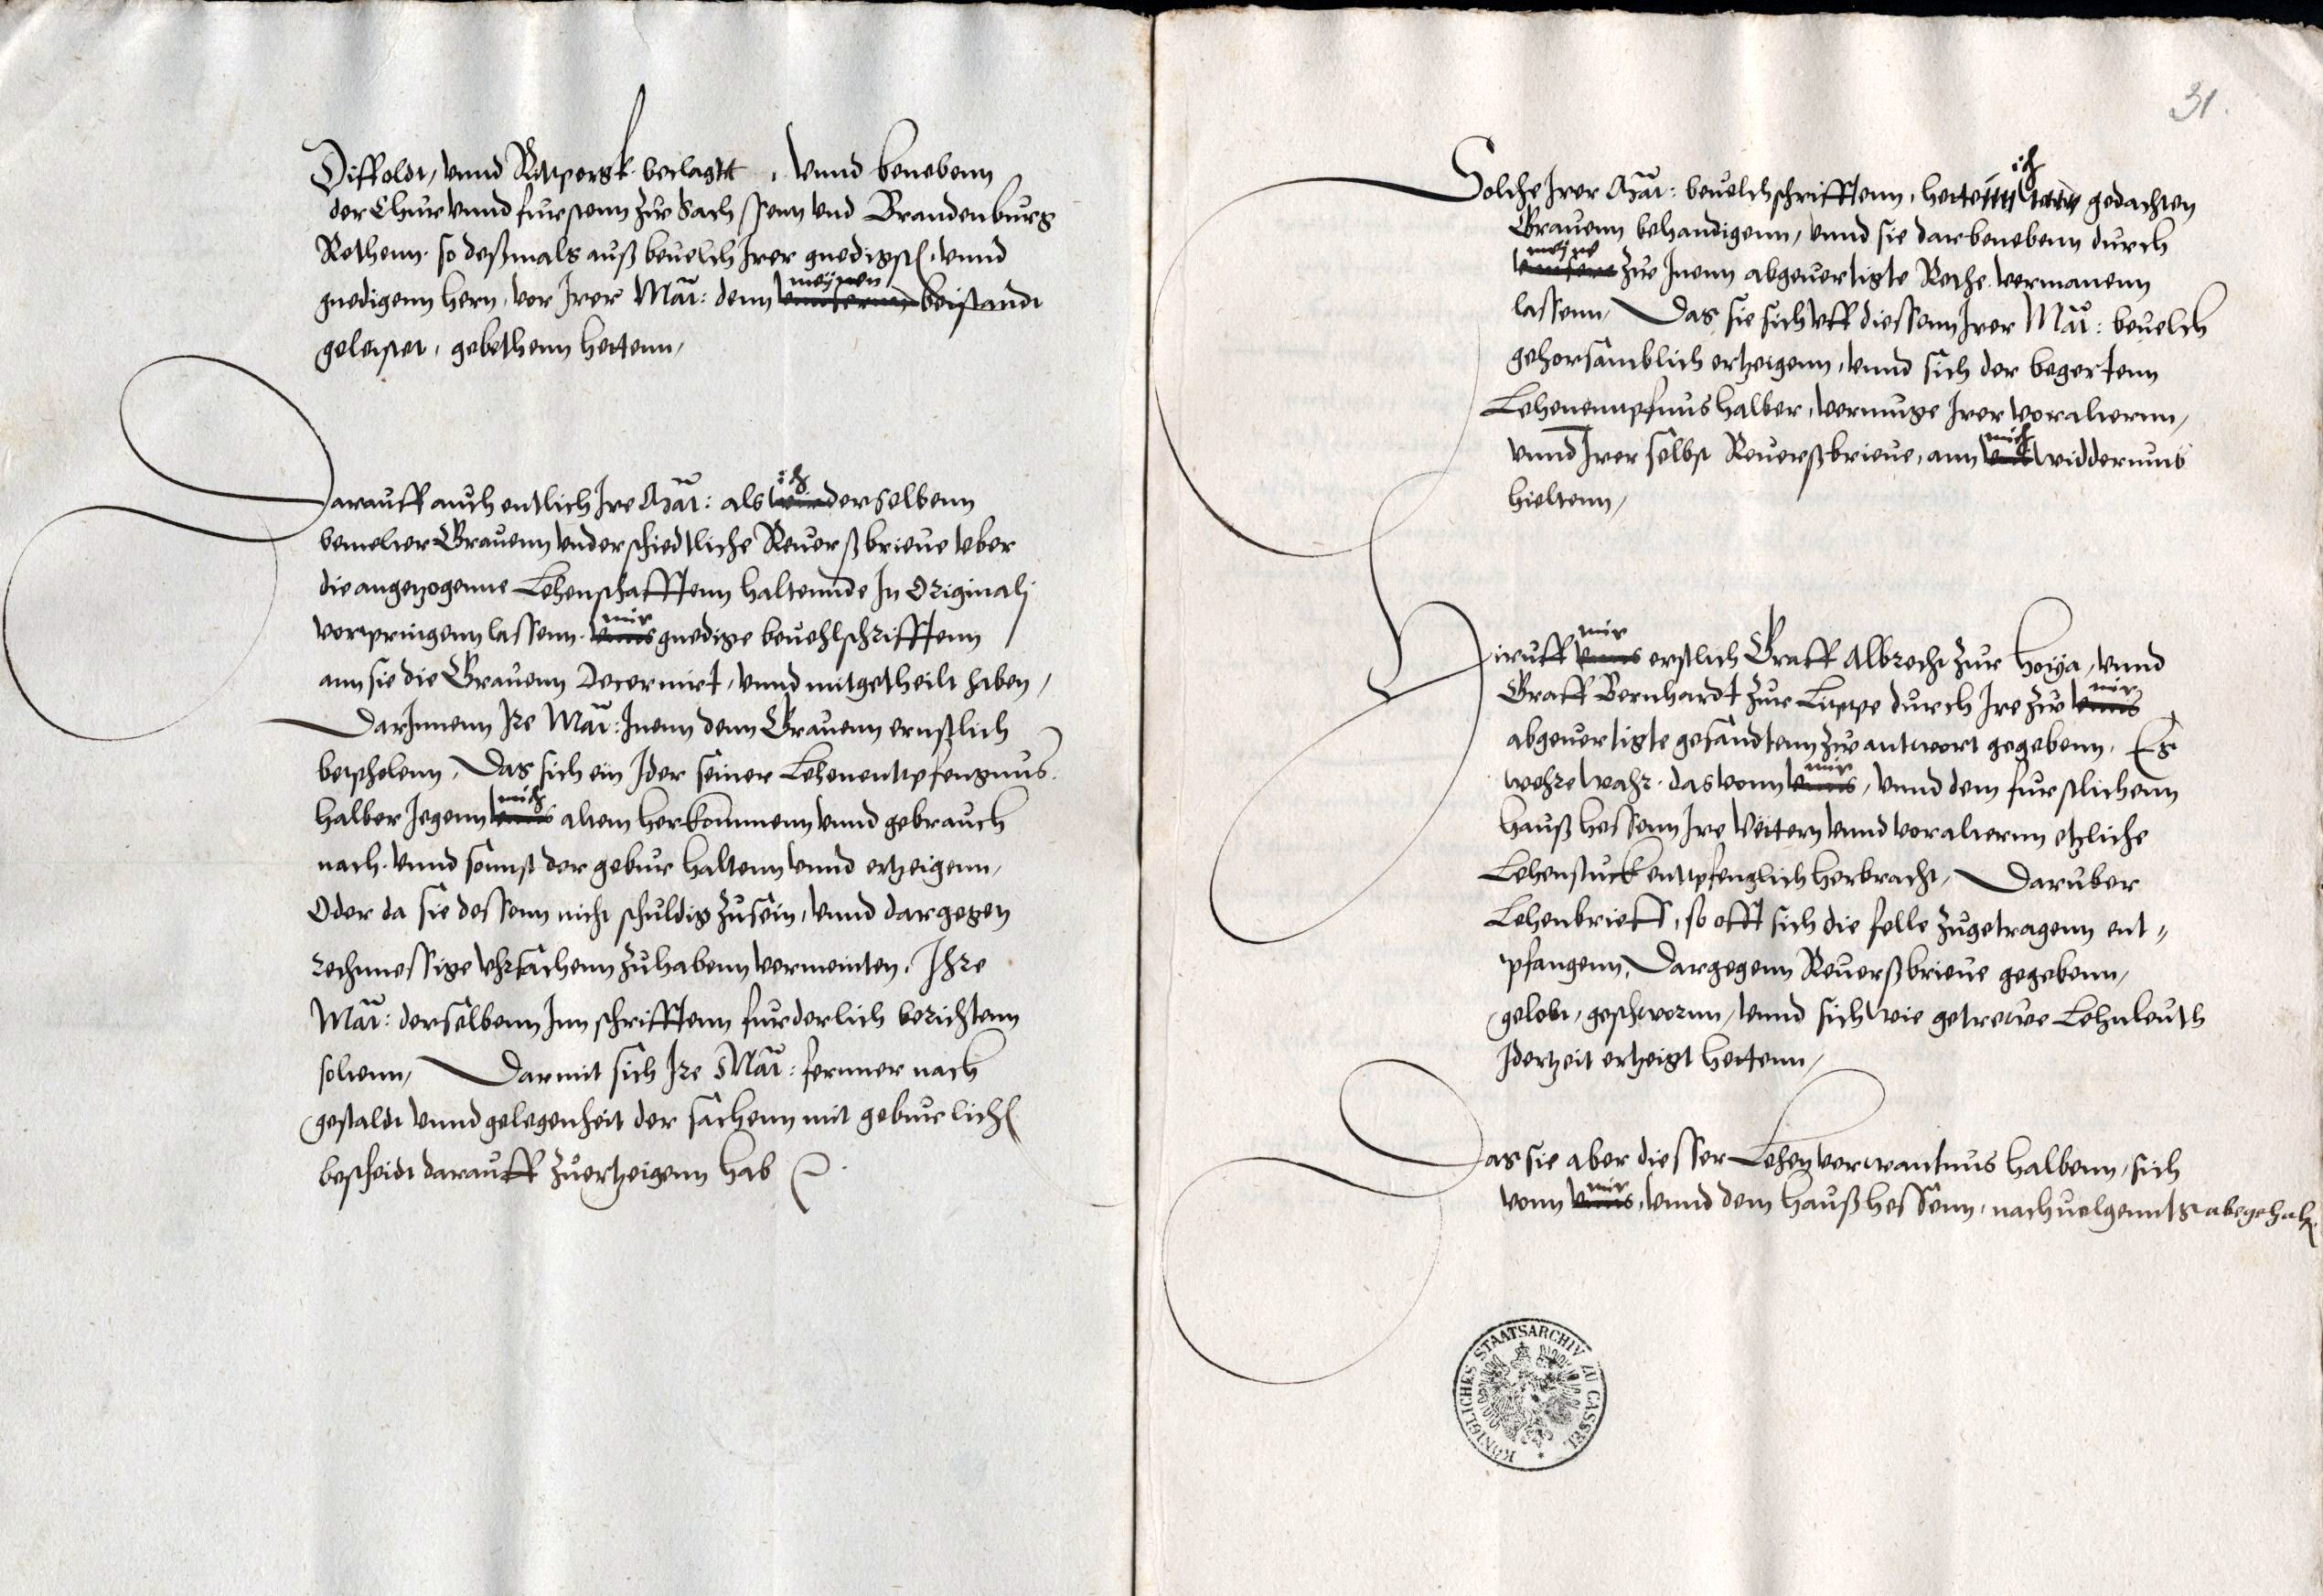 Diffoldt, vnnd Rittpergk verlagtt, vnnd benebenn
der Chur vnnd fursten zur Sachssenn vnd Brandenburg
Rethenn, so deßmals auß beuelch Irer gnedigst, vnnd
gnedigenn hern, vor Irer Mat: denn meynen vnnsernn beistandt
geleistet, gebethenn hettenn,
Darauff auch entlich Ire Mat: als ich wir derselbenn
bemelter Grauenn vnderschiedtliche Reuerßbrieue vber
die angezogenne Lehenschafftenn haltennde In Originali
vorpringenn lassenn. mir vnns gnedige beuehlschrifftenn
ann sie die Grauenn Decernirt, vnnd mitgetheilt haben,
DarInnenn Ire Mat: Inenn denn Grauenn ernstlich
beuhelenn, Das sich ein Ider seiner Lehenentpfengnus
halber Iegenn mich vnns altem herkommenn vnnd gebrauch
nach vnnd sonnst der gebur haltenn vnnd ertzeigenn,
Oder da sie dessenn nicht schuldig zusein, vnnd dargegen
rechmessige vhrsachenn zuhabenn vermeinten, Ihre
Mat: derselbenn Inn schrifftenn furderlich berichtenn
soltenn, Darmit sich Ire Mat: fernner nach
gestaldt vnnd gelegenheit der sachenn mit geburlich
bescheidt darauff zuertzeigenn hab
31.
Solche Irer Mat: beuelchschrifftenn, hette ich gedachten
Grauenn behandigenn, vnnd sie darbenebenn durch
meyne vnnsere zur Inenn abgeuertigte Rethe vermanenn
lassenn, Das sie sich vff diessenn Irer Mat: beuelch
gehorsamblich ertzeigenn, vnnd sich der begertenn
Lehenentpfnus halber, vermuge Irer voralternn,
vnnd Irer selbst Reuerßbrieue, ann mich vns widdernus
hieltenn,
Hiruff mir vnns erstlich Graff Albrecht zur Hoya, vnnd
Graff Bernhardt zur Lippe durch Ire zur mir vnns
abgeuertigte gesandtenn zur antwort gegebenn, Es
wehre wahr, das vonn mir vnns, vnnd dem furstlichenn
hauß hessenn Ire Vettern vnnd voralternn etzliche
Lehenstuck entpfenglich herbracht, Daruber
Lehenbrieff, so offt sich die felle zugetragenn ent-
pfangenn, Dargegenn Reuerßbrieue gegebenn,
gelobt, geschwornn, vnnd sich wie getrewe Lehnleuth
Iderzeit ertzeigt hettenn,
Das sie aber diesser Lehenverwantnus halbenn, sich
vonn mir vnns, vnnd dem hauß hessenn, nachuolgennts
KÖNIGLICHES STAATSARCHIV ZU CASSEL